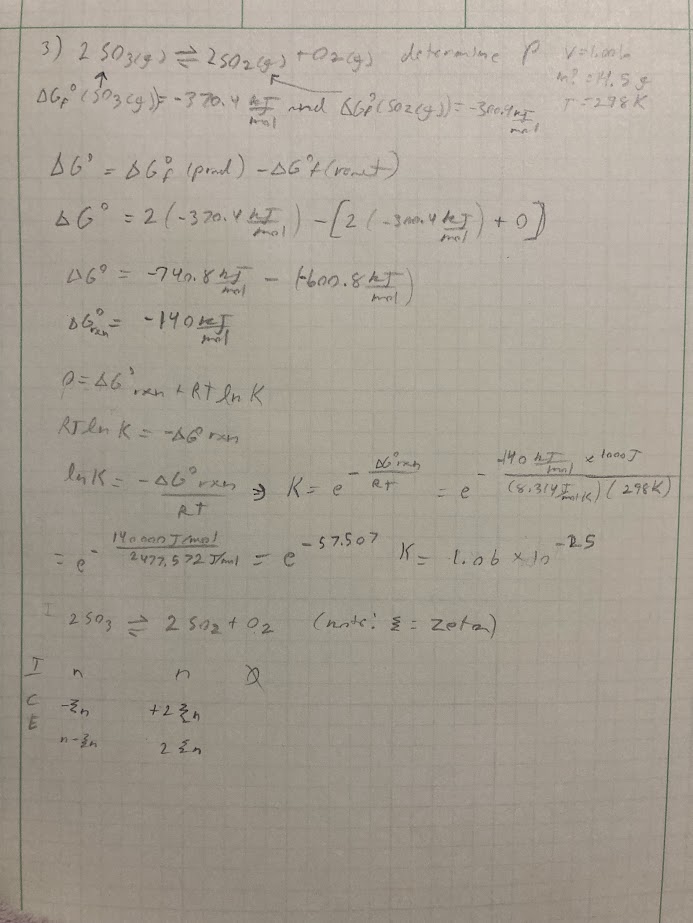 3) 2 SO₃(g) ⇌ 2 SO₂(g) + O₂(g) determine P V = 1.00 L
m° = 14.5 g
ΔG_f°(SO₃(g)) = -370.4 kJ/mol and ΔG_f°(SO₂(g)) = -300.4 kJ/mol T = 298 K
ΔG° = ΔG_f°(prod) - ΔG°f(react)
ΔG° = 2(-370.4 kJ/mol) - [2(-300.4 kJ/mol) + 0]
ΔG° = -740.8 kJ/mol - (-600.8 kJ/mol)
ΔG°rxn = -140 kJ/mol
0 = ΔG°rxn + RT ln K
RT ln K = -ΔG°rxn
ln K = -ΔG°rxn/RT ⇒ K = e^-(ΔG°rxn/RT) = e^-(-140 kJ/mol × 1000J/(8.314 J/mol·K)(298K))
= e^-(140000 J/mol/2477.572 J/mol) = e^-57.507 K = 1.06 × 10^-25
I 2 SO₃ ⇌ 2 SO₂ + O₂ (note: ξ = zeta)
I n n
C -ξn +2ξn
E n-ξn 2ξn